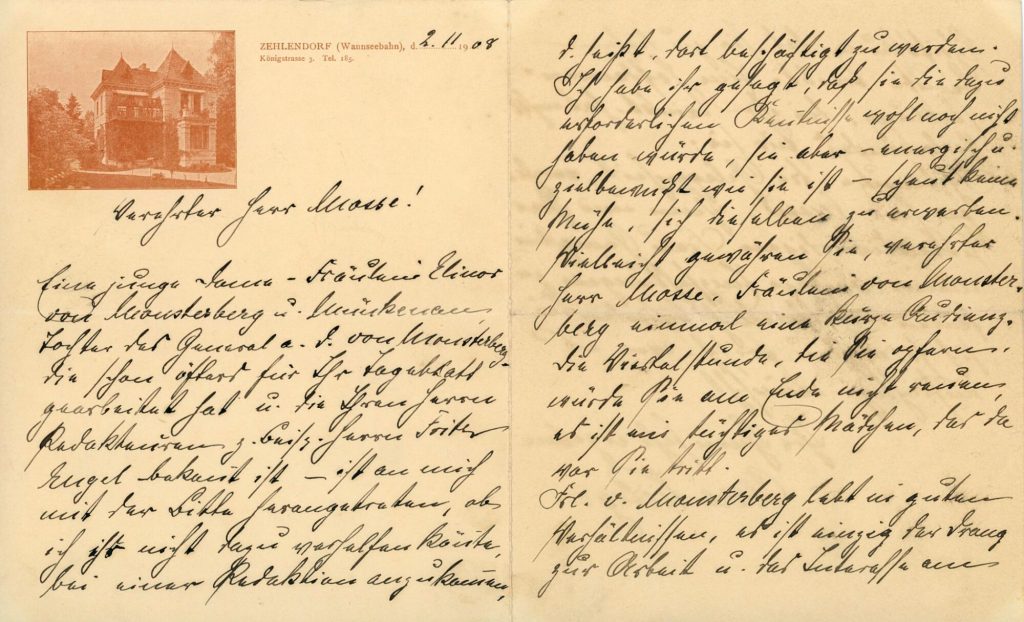 ZEHLENDORF (Wannseebahn), d. 2.11.1908
Königstrasse 3. Tel. 185.
Verehrter Herr Mosse!
Eine junge Dame – Fräulein Elinor
von Monsterberg u. Münkenau,
Tochter des General a. D. von Monsterberg –
die schon öfters für Ihr Tageblatt
gearbeitet hat u. die Ihren Herrn
Redakteuren z. Beisp. Herrn Fritz
Engel bekannt ist – ist an mich
mit der Bitte herangetreten, ob
ich ihr nicht dazu verhelfen könnte,
bei einer Redaktion anzukommen,
d. heißt, dort beschäftigt zu werden.
Ich habe ihr gesagt, daß sie die dazu
erforderlichen Kentnisse wohl noch nicht
haben würde, sie aber – energisch u.
zielbewußt wie sie ist – scheut keine
Mühe, sich dieselben zu erwerben.
Vielleicht gewähren Sie, verehrter
Herr Mosse, Fräulein von Monster-
berg einmal eine kurze Audienz.
Die Viertelstunde, die Sie opfern,
würde Sie am Ende nicht reuen,
es ist ein tüchtiges Mädchen, das da
vor Sie tritt.
Frl. v. Monsterberg lebt in guten
Verhältnissen, es ist einzig der Drang
zur Arbeit u. das Interesse am